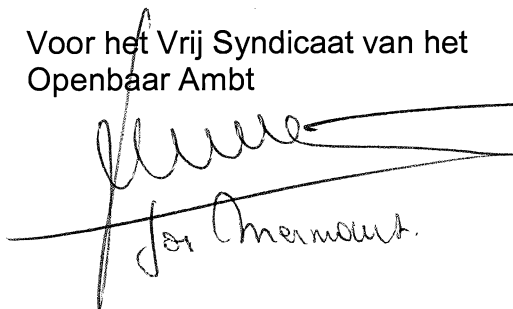 Voor het Vrij Syndicaat van het
Openbaar Ambt
Jos Mermans.